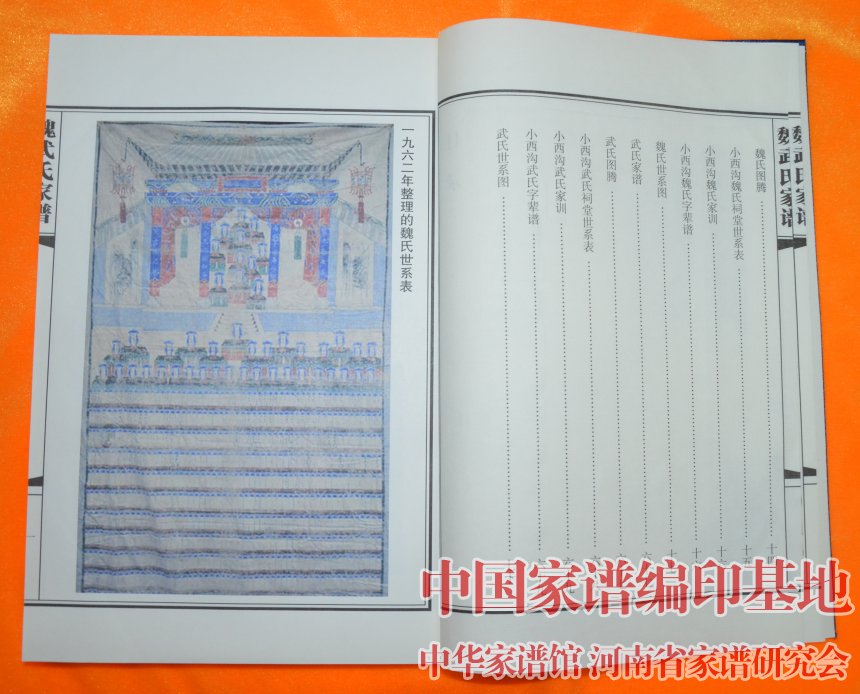 魏武氏家谱
魏武氏家谱
魏氏图腾
小西沟魏氏祠堂世系表
小西沟魏氏家训
小西沟魏氏字辈谱
魏氏世系图
武氏家谱
武氏图腾
小西沟武氏祠堂世系表
小西沟武氏家训
小西沟武氏字辈谱
武氏世系图
一九六二年整理的魏氏世系表
魏武氏家谱
中国家谱编印基地
中华家谱馆 河南省家谱研究会